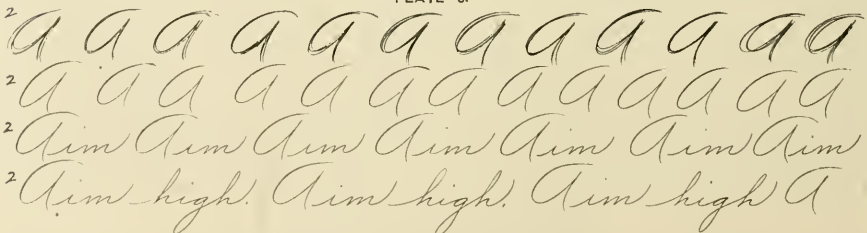 PLATE
2 A A A A A A A A A A A A
2 A A A A A A A A A A A A A
2 Aim Aim Aim Aim Aim Aim Aim
2 Aim high. Aim high. Aim high A